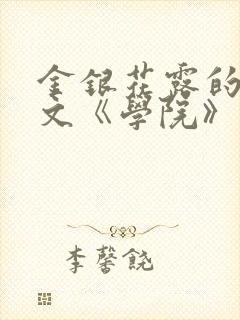 金銀花露的
文《學院》
李馨饒